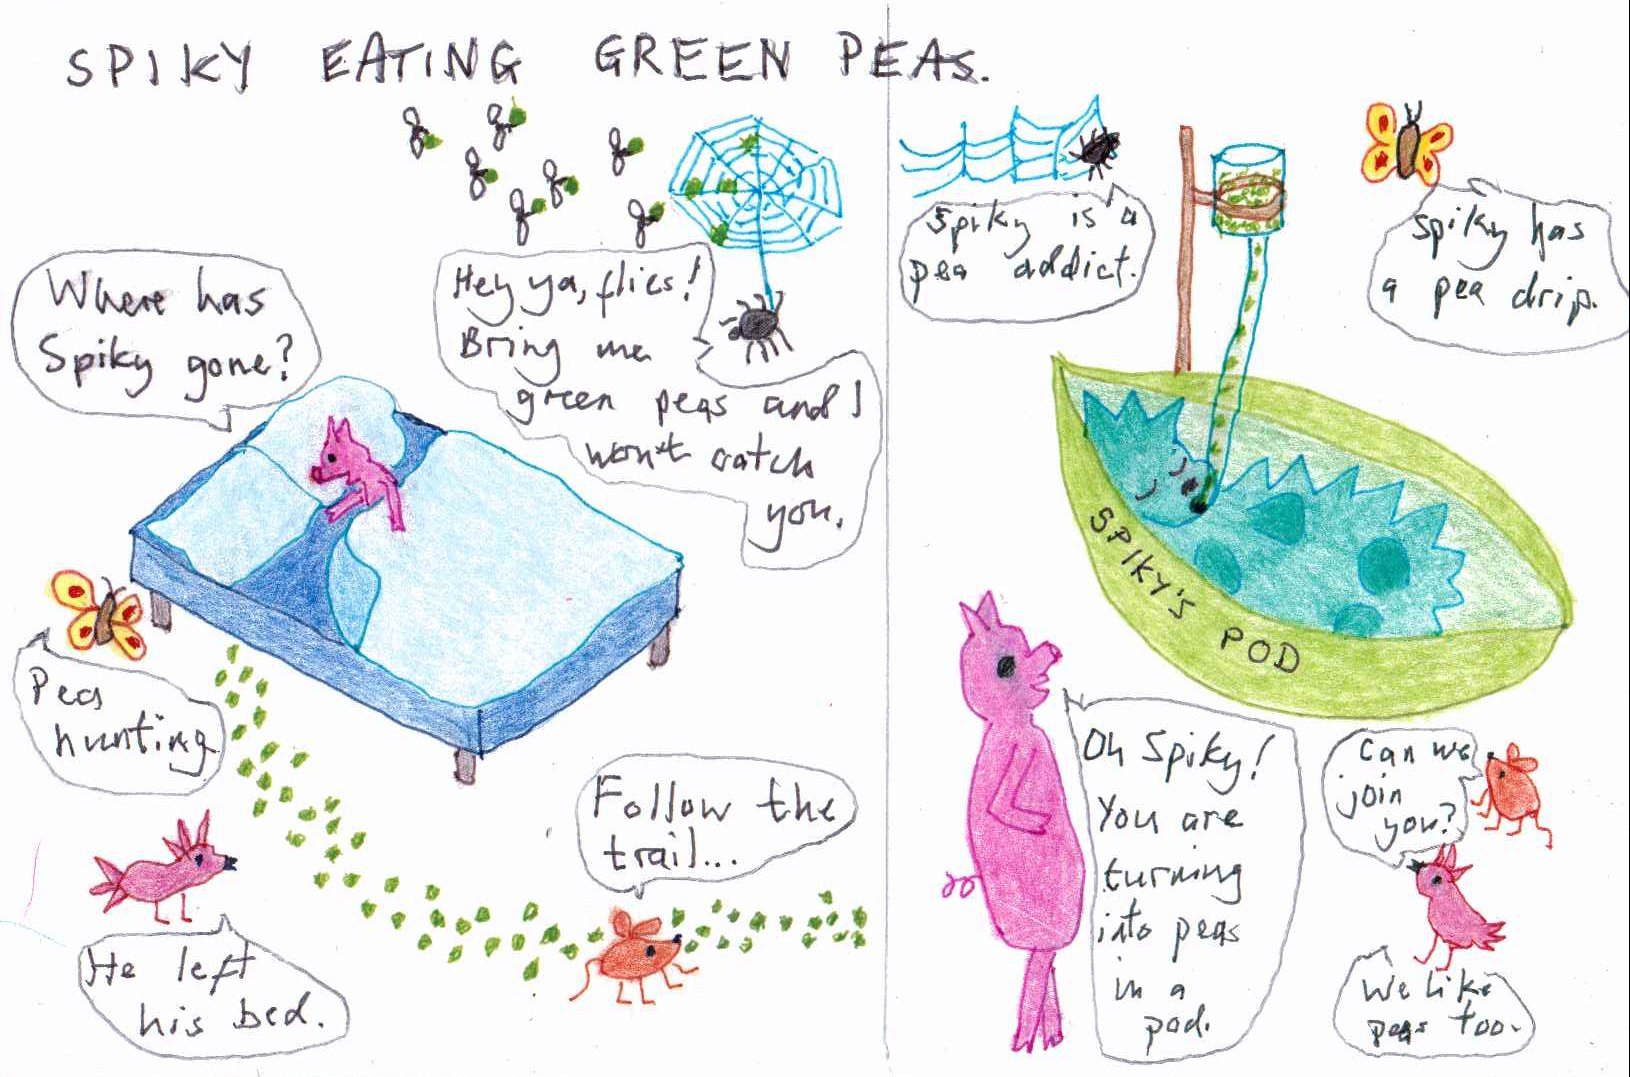 SPIKY EATING GREEN PEAS.
Where has
Spiky gone?
Hey ya, flies!
Bring me
green peas and I
won't catch
you.
Peas
hunting
He left
his bed.
Follow the
trail...
Spiky is a
pea addict.
Spiky has
a pea drip.
SPIKY'S POD
Oh Spiky!
You are
turning
into peas
in a
pod.
Can we
join
you?
We like
peas too.